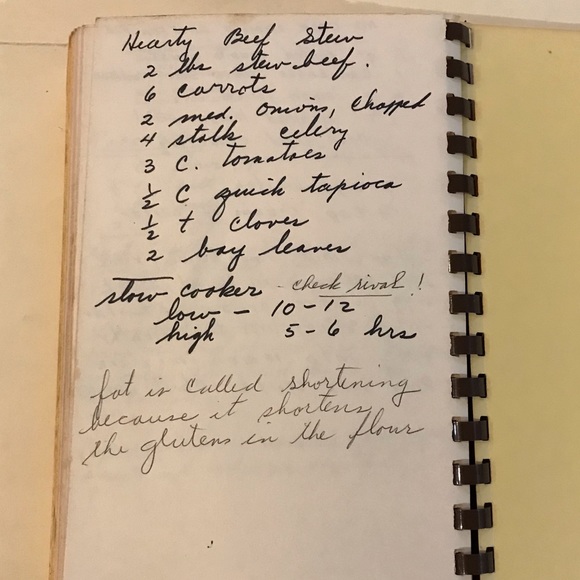 Hearty Beef Stew
2 lbs stew beef.
6 carrots
2 med. onions, chopped
4 stalk celery
3 C. tomatoes
½ C quick tapioca
½ t cloves
2 bay leaves
slow cooker - check rival!
low - 10-12
high 5-6 hrs
fat is called shortening
because it shortens
the glutens in the flour